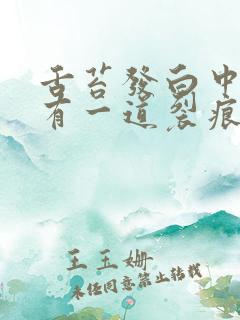 舌苔發白中
有一道裂痕
王玉姗
未经同意禁止转载